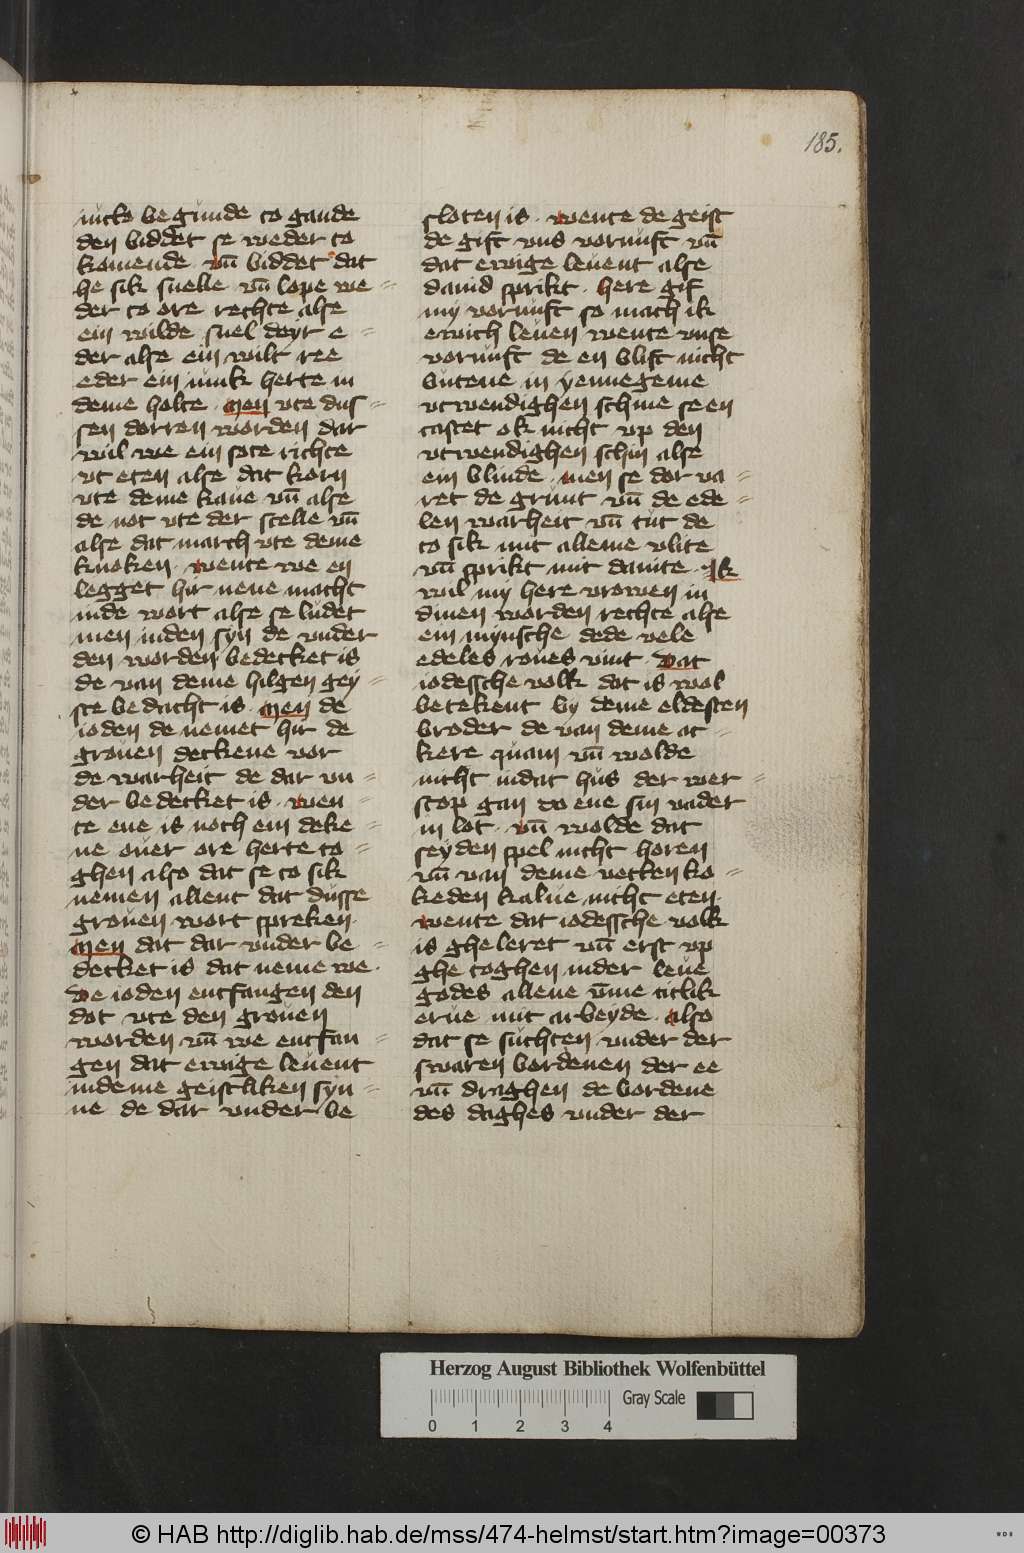 185.
iucko begunde to gande
den biddet se weder to
komende · vn̄ biddet dat
he sik snelle vn̄ lope we =
der to ore rechte alse
ein wilde snel deyr e =
der alse ein wilt ree
eder ein iunk herte in
deme holte · Men vte dus =
sen dorren worden dar
wil we ein sote richte
vt eten alse dat korn
vte deme kaue vn̄ alse
de not vte der scelle vn̄
alse dat march vte deme
knoken · wente we en
legget hir nene macht
inde wort alse se ludet
men inden syn de vnder
den worden bedecket is
de van deme hilgen gey =
ste bedacht is · Men de
ioden de nemet hir de
grouen deckene vor
de warheit de dar vn =
der bedecket is · wen =
te ene is noch ein deke =
ne ouer ore herte to =
ghen also dat se to sik
nemen allent dat dusse
grouen wort spreken ·
Men dat dar vnder be =
decket is dat neme we ·
De ioden entfangen den
dot vte den grouen
worden vn̄ we entfan =
gen dat ewige leuent
indeme geistliken syn =
ne de dar vnder be
sloten is · wente de geist
de gift vns vornuft vn̄
dat ewige leuent alse
dauid sprikt · here gif
my vornuft so mach ik
ewich leuen wente vnse
vornuft de en blift nicht
butene in yennegeme
vtwendighen schine se en
tastet ok nicht vp den
vtwendighen schin alse
ein blinde · men se dor va =
ret de grunt vn̄ de ede =
len warheit vn̄ tut de
to sik mit alleme vlite
vn̄ sprikt mit dauite · Ik
wil my here vrowen in
dinen worden rechte alse
ein mynsche dede vele
edeles roues vint · Dat
iodessche volk dat is wol
betekent by deme eldesten
broder de van deme ac =
kere quam vn̄ wolde
nicht indat hus der wer =
scop gan do ene sin vader
in lot · vn̄ wolde dat
seyden spel nicht horen
vn̄ van deme vetken ko =
keden kalue nicht eten ·
wente dat iodessche volk
is gheleret vn̄ erst vp
ghe toghen inder leue
godes allene v̄me titlik
erue mit arbeyde · also
dat se suchten vnder der
swaren bordenen der ee
vn̄ draghen de bordene
des daghes vnder der
Herzog August Bibliothek Wolfenbüttel
Gray Scale
0 1 2 3 4
© HAB http://diglib.hab.de/mss/474-helmst/start.htm?image=00373